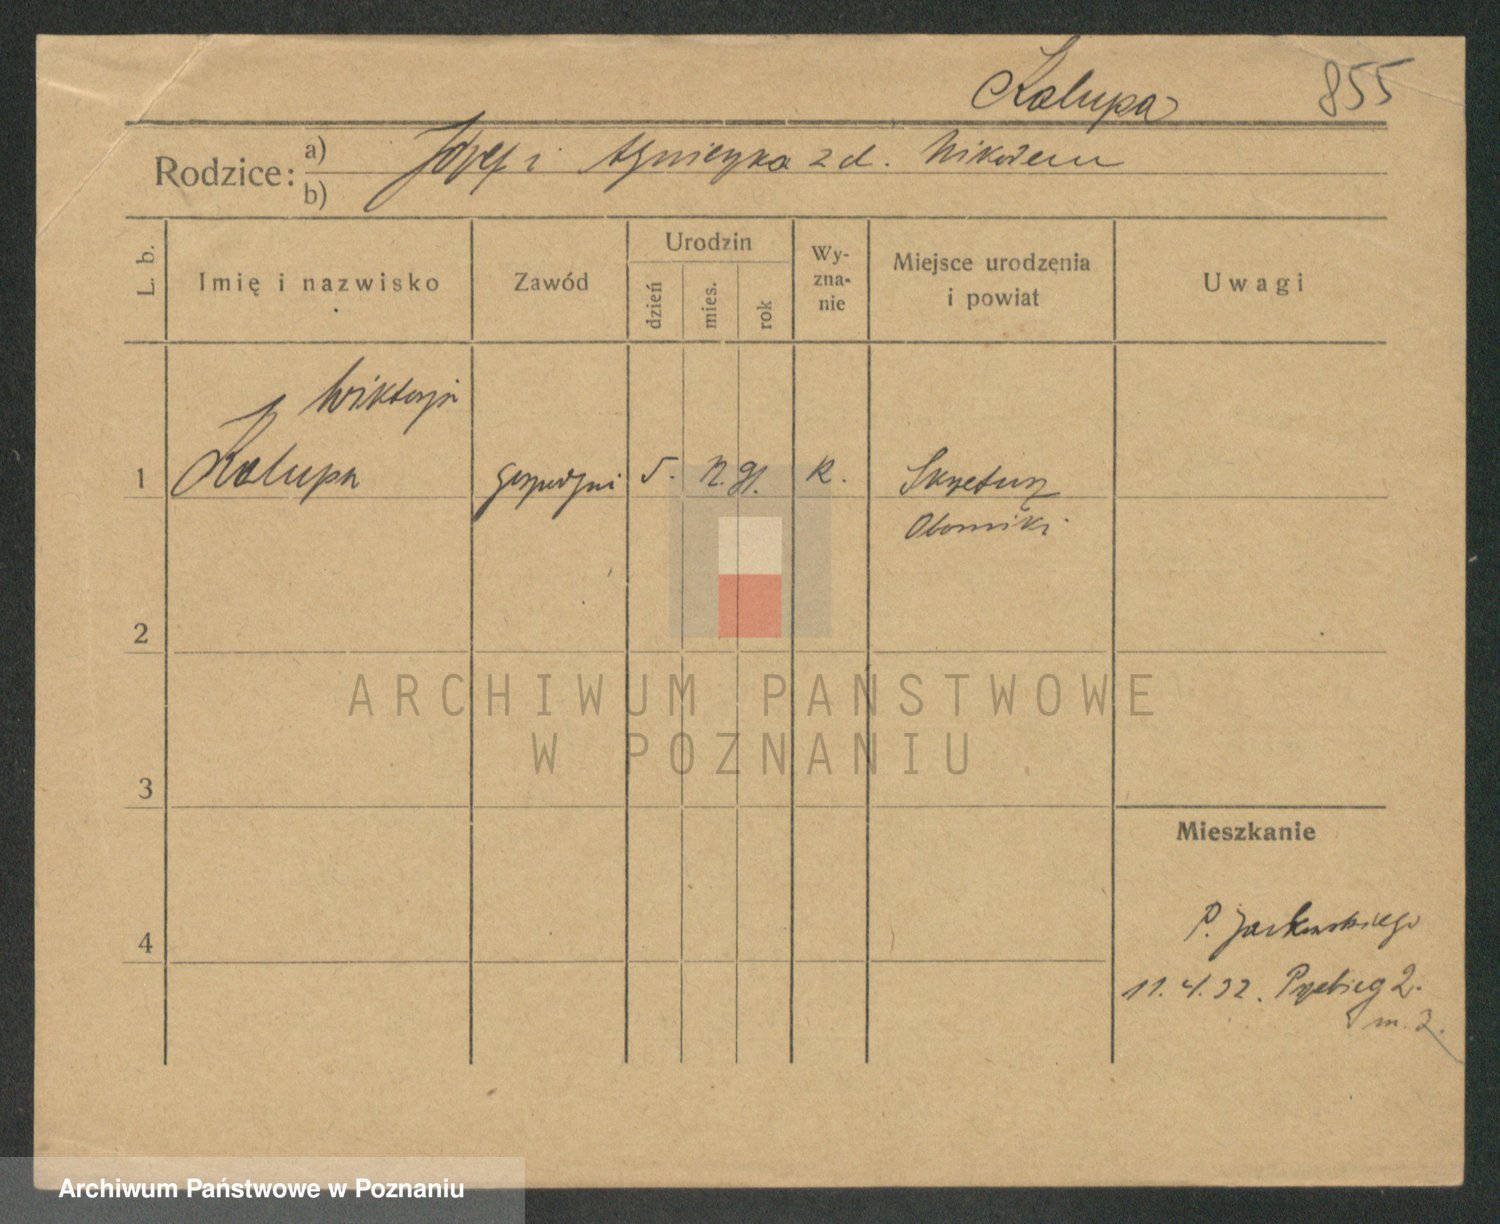 Kalupa 855
Rodzice: a) Józef i Agnieszka z d. Nikodem
b)
L. b. Imię i nazwisko Zawód Urodzin dzień mies. rok Wy-zna-nie Miejsce urodzenia i powiat Uwagi
Wiktorja
1 Kalupa gospodyni 5. 12. 91. k. Skretusz
Oborniki
2
ARCHIWUM PAŃSTWOWE
W POZNANIU
3
Mieszkanie
4
P. Jackowskiego
11.4.32. 2.
m. 3.
Archiwum Państwowe w Poznaniu